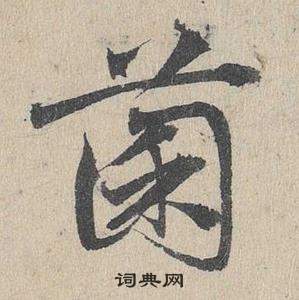 菌
词典网